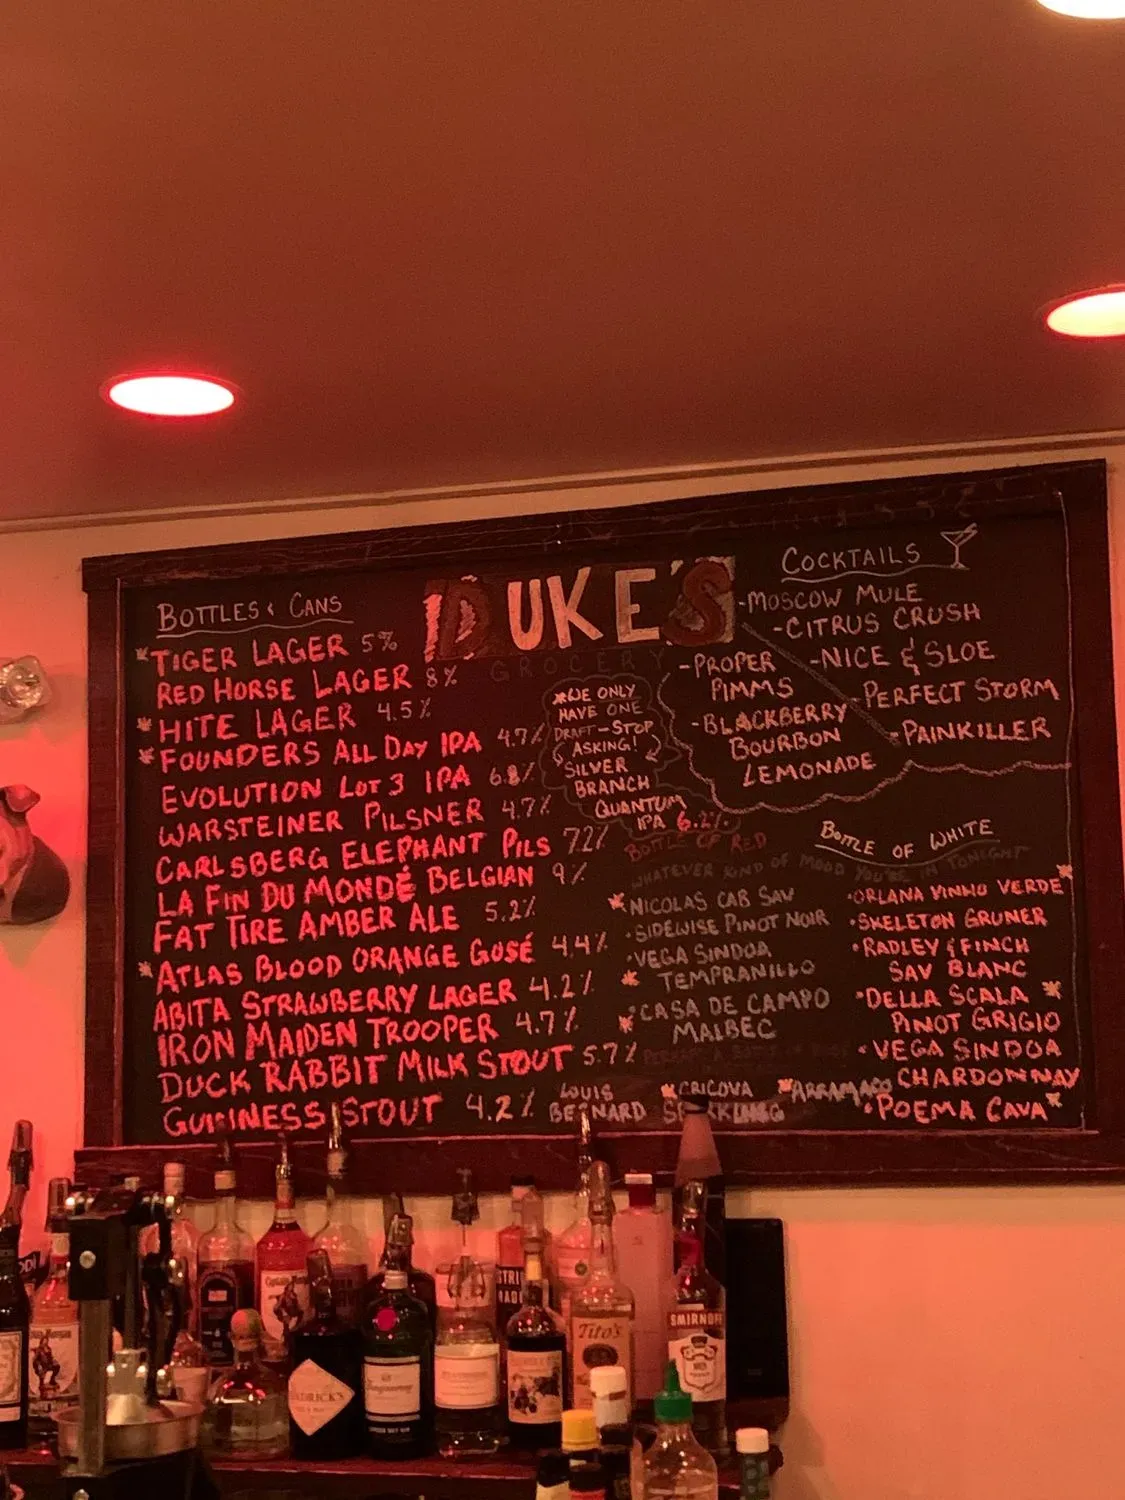 DUKE'S
GROCERY
BOTTLES & CANS
TIGER LAGER 5%
RED HORSE LAGER 8%
HITE LAGER 4.5%
FOUNDERS ALL DAY IPA 4.7%
EVOLUTION LOT 3 IPA 6.8%
WARSTEINER PILSNER 4.7%
CARLSBERG ELEPHANT PILS 7.2%
LA FIN DU MONDÉ BELGIAN 9%
FAT TIRE AMBER ALE 5.2%
ATLAS BLOOD ORANGE GOSÉ 4.4%
ABITA STRAWBERRY LAGER 4.2%
IRON MAIDEN TROOPER 4.7%
DUCK RABBIT MILK STOUT 5.7%
GUINNESS STOUT 4.2%
*WE ONLY
HAVE ONE
DRAFT - STOP
ASKING!
SILVER
BRANCH
QUANTUM
IPA 6.2%
COCKTAILS
-MOSCOW MULE
-CITRUS CRUSH
-NICE & SLOE
-PERFECT STORM
-PAINKILLER
-PROPER
PIMMS
-BLACKBERRY
BOURBON
LEMONADE
BOTTLE OF RED
WHATEVER KIND OF MOOD YOU'RE IN TONIGHT
NICOLAS CAB SAV
SIDEWISE PINOT NOIR
VEGA SINDOA
TEMPRANILLO
CASA DE CAMPO
MALBEC
PERHAPS A BOTTLE OF
LOUIS
BERNARD
CRICOVA
SPARKLING
BOTTLE OF WHITE
ORLANA VINHO VERDE
SKELETON GRUNER
RADLEY & FINCH
SAV BLANC
DELLA SCALA
PINOT GRIGIO
VEGA SINDOA
CHARDONNAY
POEMA CAVA
Captain Morgan
HENDRICK'S
Tanqueray
Tito's
SMIRNOFF